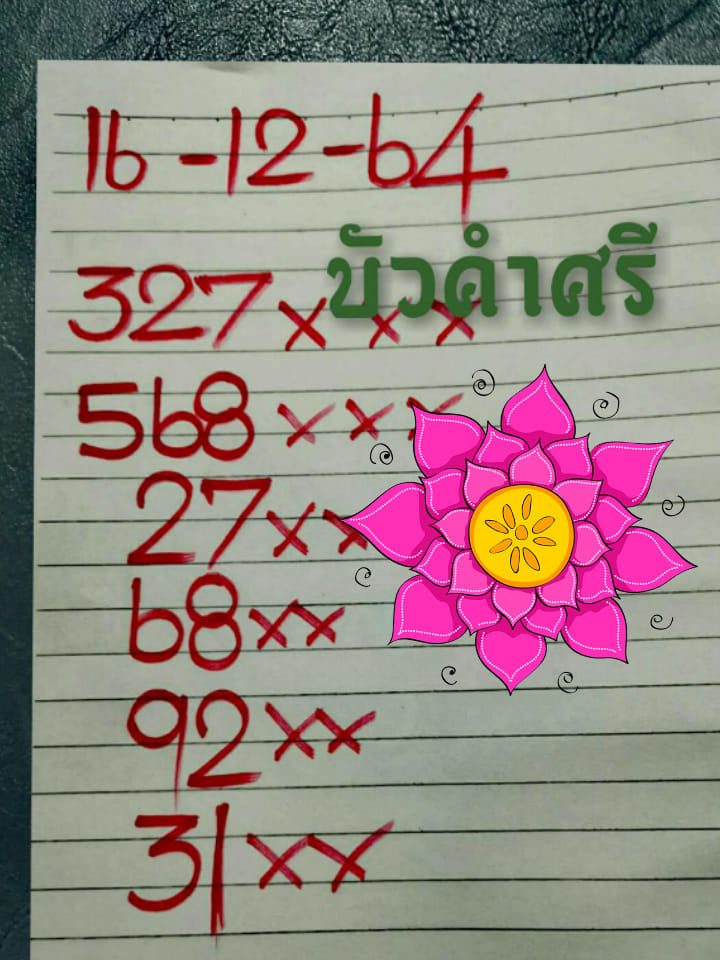 16-12-64
บัวคำศรี
327 x x x
568 x x x
27 x x
68 x x
92 x x
31 x x